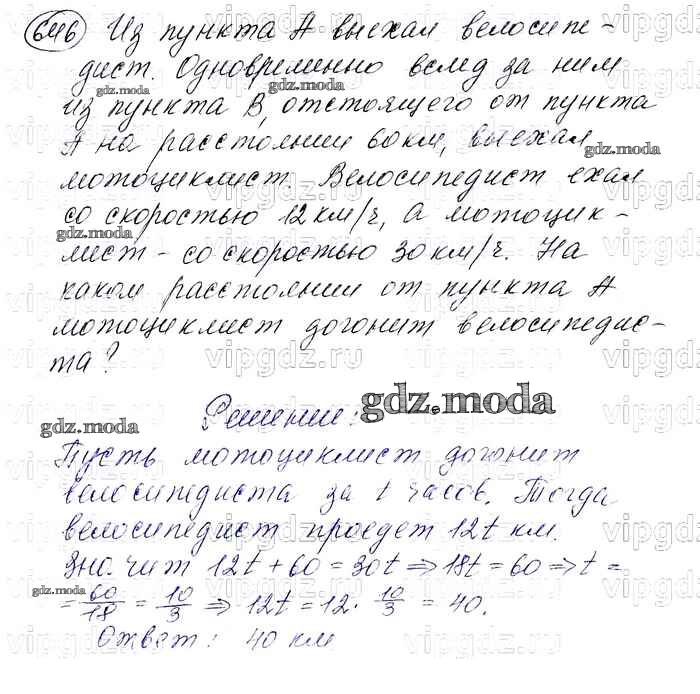 646 Из пункта А выехал велосипе-
дист. Одновременно вслед за ним
из пункта В, отстоящего от пункта
А на расстоянии 60 км, выехал
мотоциклист. Велосипедист ехал
со скоростью 12 км/ч, а мотоцик-
лист - со скоростью 30 км/ч. На
каком расстоянии от пункта А
мотоциклист догонит велосипедис-
та?
Решение:
gdz.moda
Пусть мотоциклист догонит
велосипедиста за t часов. Тогда
велосипедист проедет 12t км.
Значит 12t + 60 = 30t ⇒ 18t = 60 ⇒ t =
= 60/18 = 10/3 ⇒ 12t = 12 · 10/3 = 40.
Ответ: 40 км